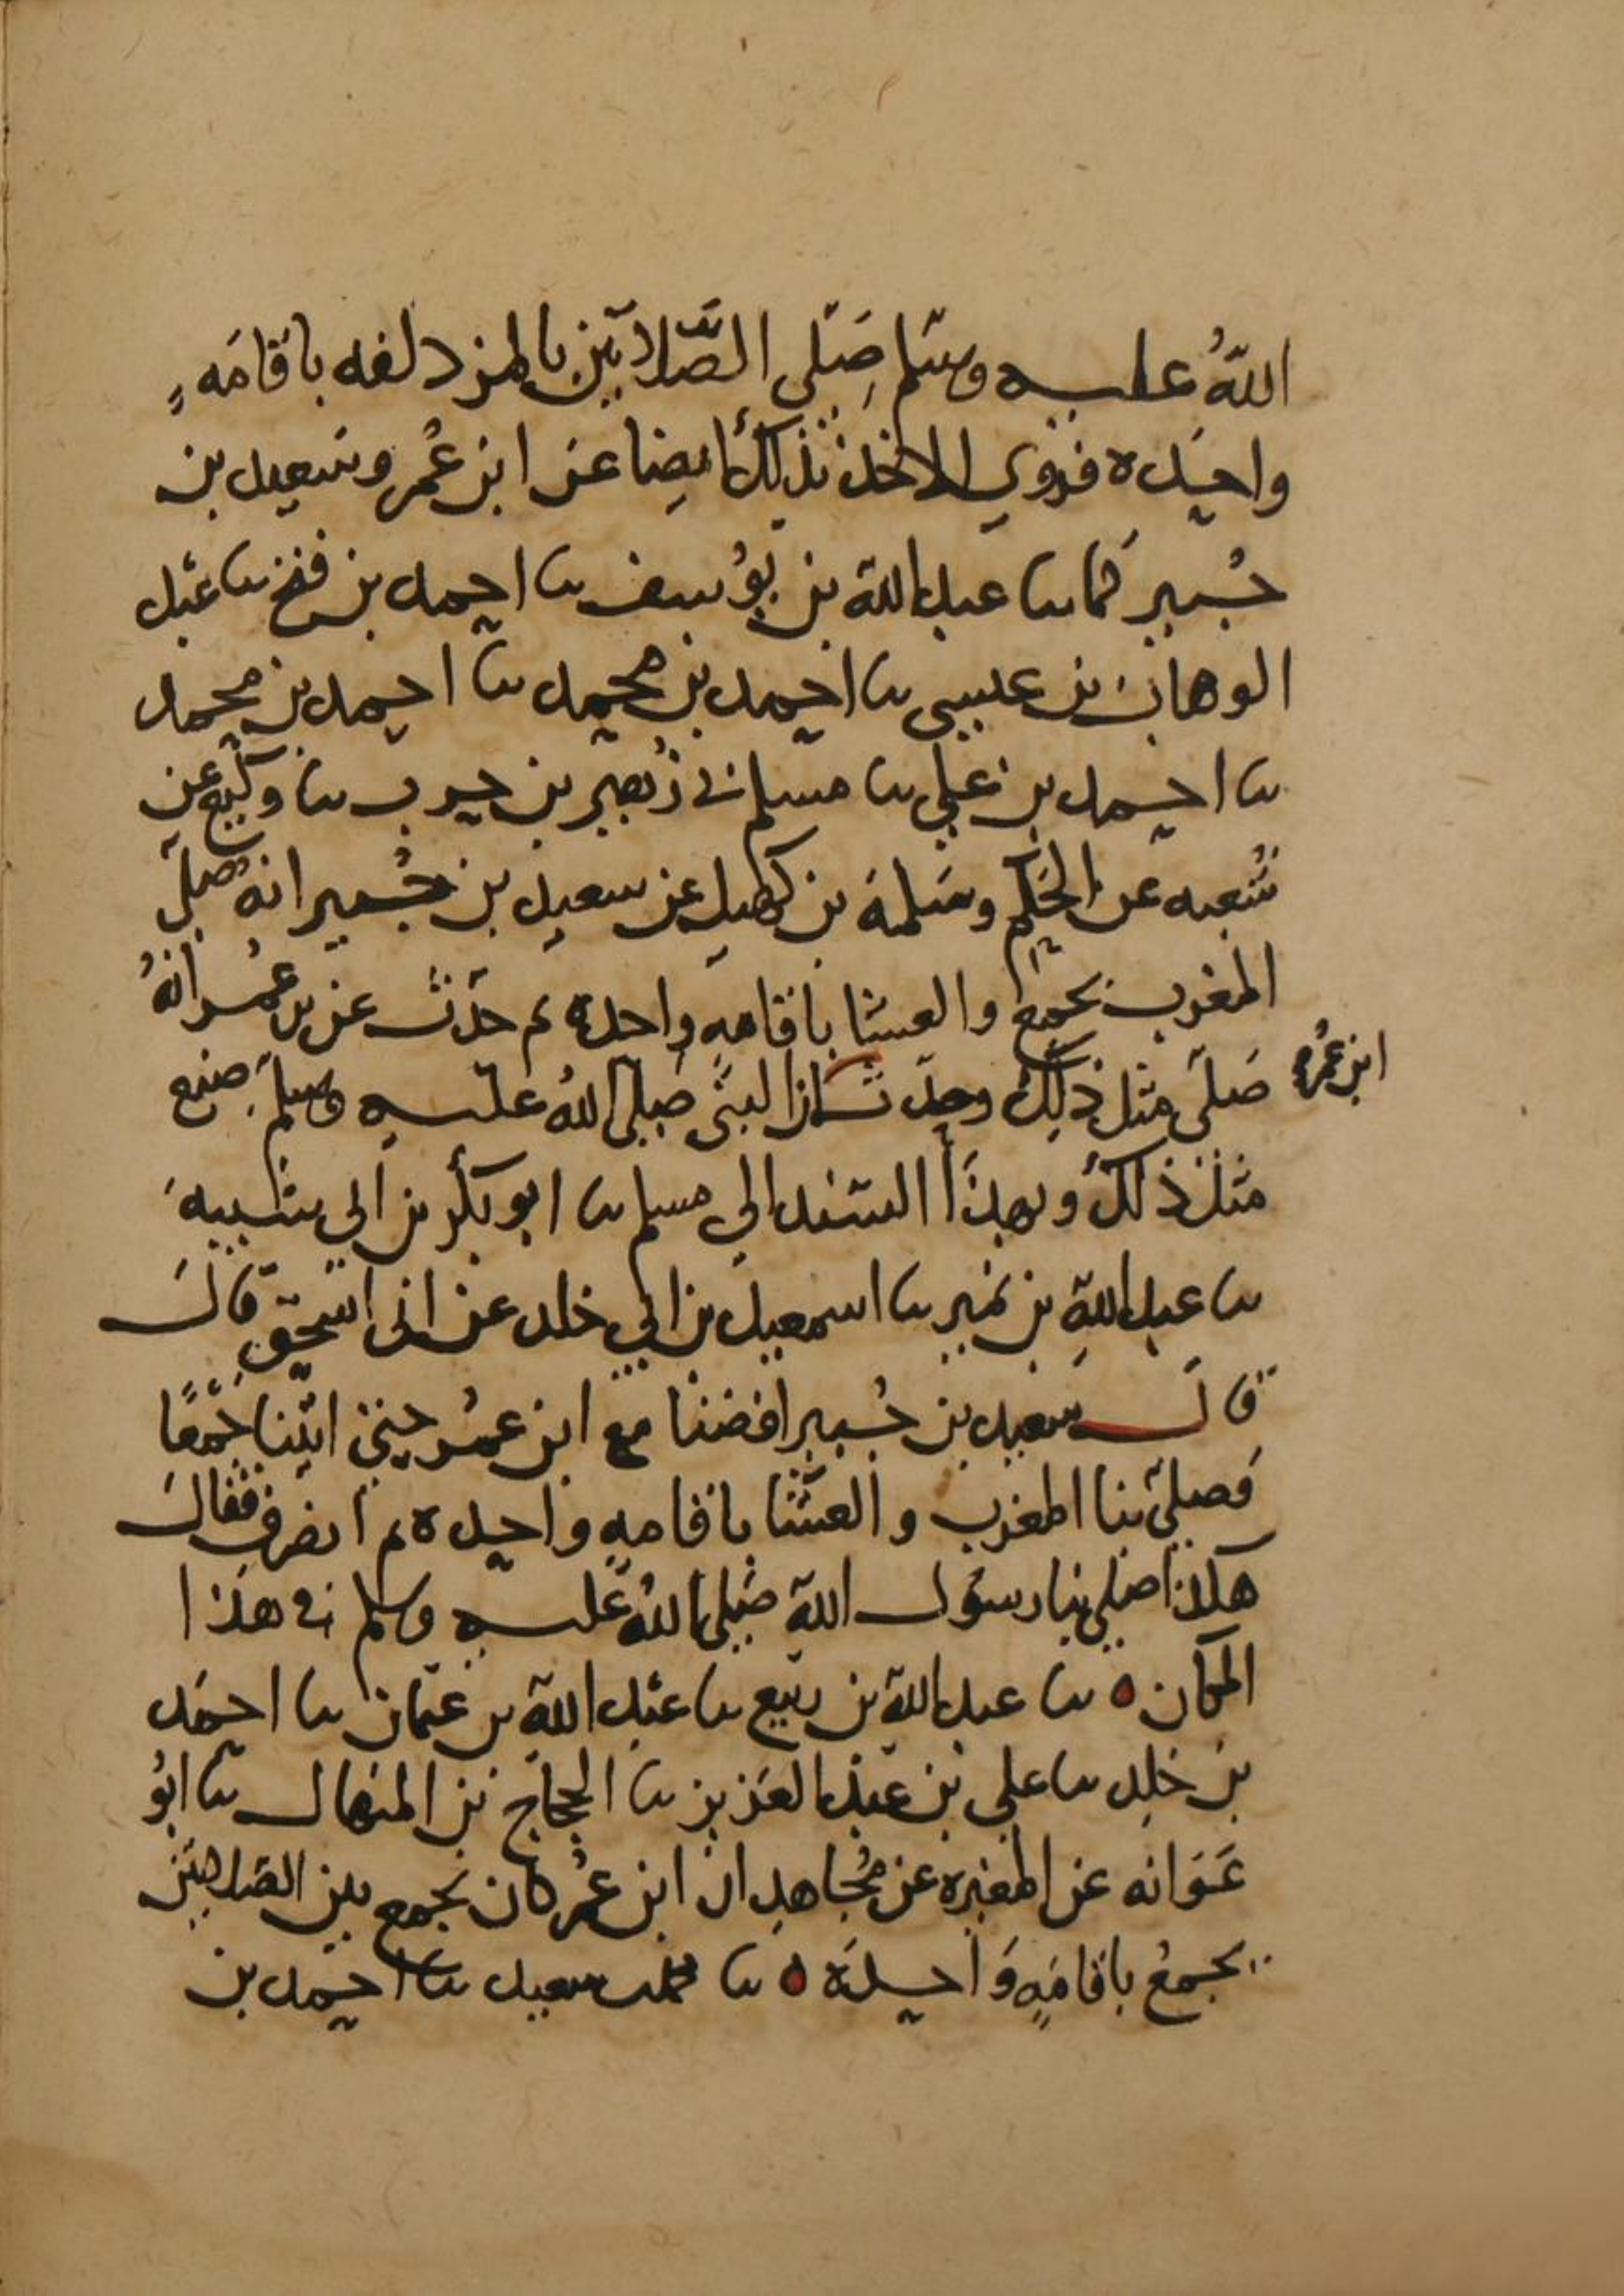 اللهُ عليه وسلم صَلى الصَّلاتين بالمزدلفه باقامَهٍ
واحده فروي الاخذ بذلك ايضا عن ابن عُمر وسَعيد بن
جُبير كما نا عبد الله بن يوُسف نا احمد بن فتح نا عَبد
الوهاب بن عيسى نا احمد بن محمد نا احمد بن محمد
نا احمد بن علي نا مسلم ني زُهير بن حرب نا وكيع عن
شُعبه عن الحكم وسَلمة بن كهيل عن سعيد بن جُبير انهُ صلّى
المغرب بجمع والعشا باقامهٍ واحدة ثم حدّث عن بن عُمر انهُ
صَلّى مثل ذلك وحدّث ابن عُمر ان النبي صَلى اللهُ عليه وسلم صنع
مثل ذلك وبهذا السند الى مسلم نا ابو بكر بن ابي شيبهَ
نا عبد اللهِ بن نمير نا اسمعيل بن ابي خلد عن ابي اسحق قال
قال سعيد بن جُبير افضنا مع ابن عمُر حتى اتينا جَمعًا
فصلى بنا المغرب والعشا باقامهٍ واحده ثم انصرف فقال
هكذا صلى بنا رسوُل الله صَلى اللهُ عليه وسلم في هذا
المكان ه نا عبد الله بن ربيع نا عبد الله بن عثمان نا احمَد
بن خلد نا علي بن عبد العَزيز نا الحجاج بن المنهال نا ابوُ
عَوَانه عن المغيره عن مُجاهد ان ابن عُمر كان يجمع بين الصلاتين
بجمعُ باقامَهٍ وَاحدَة ه نا محمد سعيد نا احمد بن